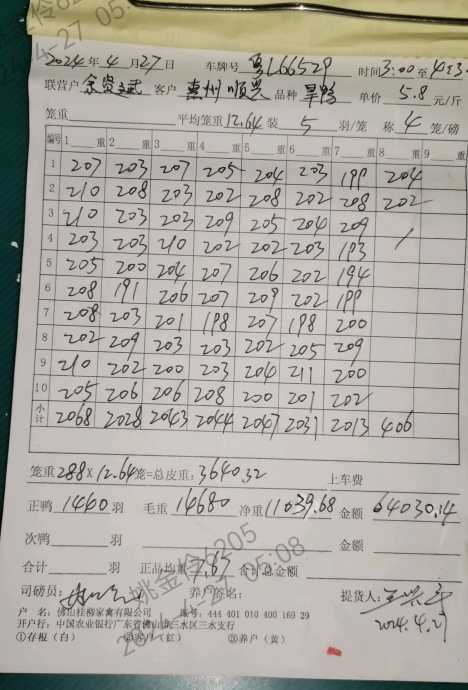 2024年4月27日 车牌号 粤L66529 时间3:00至
联营户 客户 惠州顺兴 品种 旱鸭 单价 5.8 元/斤
笼重 平均笼重12.64装 5 羽/笼 称 4 笼/磅
编号 1 重 2 重 3 重 4 重 5 重 6 重 7 重 8 重 9 重
1 207 203 207 205 204 203 199 204
2 210 208 203 202 208 202 208 202
3 210 203 203 209 205 204 209
4 203 203 210 202 202 203 193
5 205 200 204 207 206 202 194
6 208 191 206 207 209 202 199
7 208 203 201 198 207 198 200
8 202 209 203 203 202 205 209
9 210 202 200 203 204 211 200
10 205 206 206 208 200 201 202
小计 2068 2028 2043 2044 2047 2031 2013 406
笼重288×12.64笼=总皮重:3640.32 上车费
正鸭 1460 羽 毛重 14680 净重 11039.68 金额 64030.14
次鸭 羽 金额
合计 羽 正品均重 7.67 合计总金额
司磅员: 养户签名: 提货人:
2024.4.27
户 名:佛山桂柳家禽有限公司 账号:444 401 010 400 169 29
开户行:中国农业银行广东省佛山市三水区三水支行
①存根(白) ②客户(红) ③养户(黄)
姚金伶6205
05:08